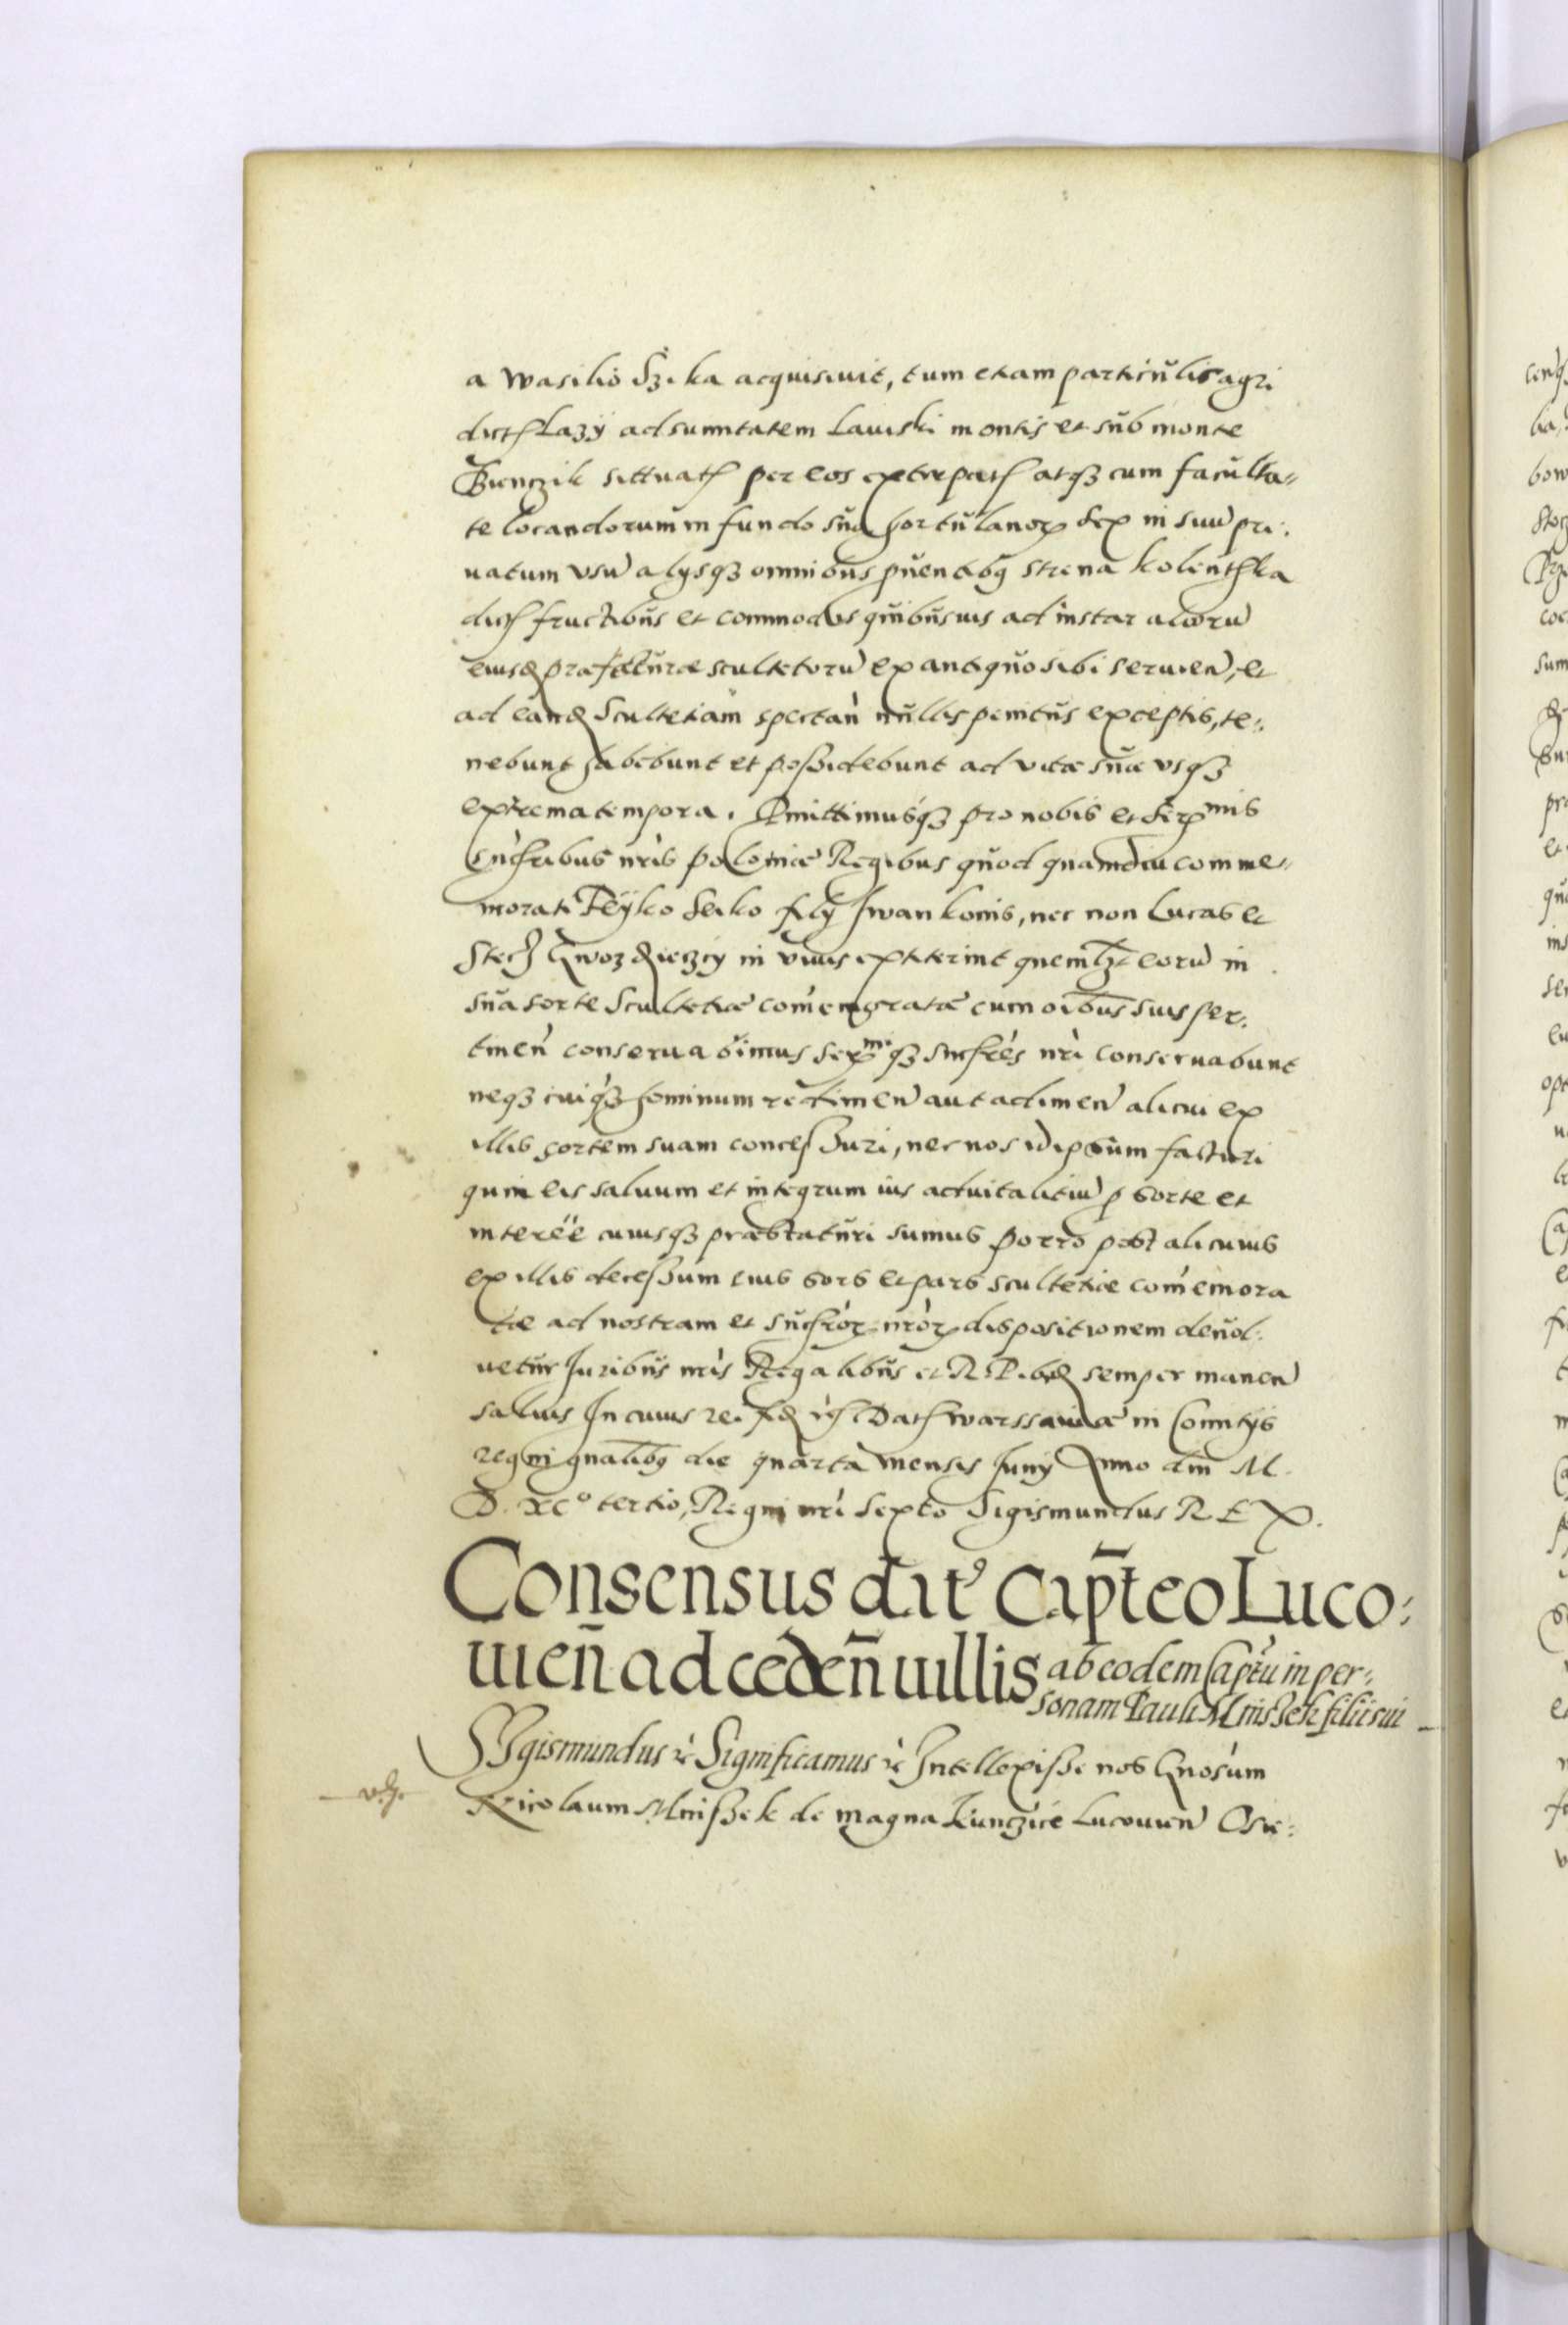 a Wasilio Szika acquisiuit, tum etiam particulis agri
dict Lazÿ ad sumitatem Lauiski montis et sub monte
Bienczik sittuat per eos extirpat atq3 cum faculta-
te locandorum in fundo suo hortulanor sex in suũ pri-
uatum vsũ alysq3 omnibus puentibq strena kolentska
dict fructibus et commodis quibusuis ad instar aliorũ
eiusd præfecturæ scultetorũ ex antiquo sibi seruien, et
ad eand Scultetiam spectan nullis penitus exceptis, te-
nebunt habebunt et possidebunt ad vitæ suæ vsq3
extrema tempora. Pmittimusq3 pro nobis et Ser mis
Succribus nris Poloniæ Regibus quod quamdiu comme-
morati Feÿko Senko filÿ Iwankonis, nec non Lucas et
Stecz Gwozdzieczcy in viuis extiterint quemlz eorũ in
sua sorte Scultetiæ comemoratæ cum oibus suis per-
tinen conseruabimus ser mi q3 sucfres nri conseruabunt
neq3 cuiq3 hominum redimen aut adimen alicui ex
illis sortem suam concessuri, nec nos id ipsum facturi
quin eis saluum et integrum ius aduitalitiũ p sorte et
interee cuiusq3 præstaturi sumus porro post alicuius
ex illis decessum eius sors et pars scultetiæ comemora
tæ ad nostram et sucfror nror dispositionem deuol-
uetur Iuribus nris Regalibus et R P. ibid semper manen
saluis In cuius rei fid rc Dat Warssauiæ in Comitÿs
regni gnalibq die quarta mensis Iunÿ Anno dm M.
D. XC° tertio, Regni nri Sexto Sigismundus R E X.
Consensus dat' Capteo Luco-
uien ad ceden uillis ab eodem Captu in per-
sonam Pauli Mniszek filii sui
Sygismundus rc Significamus rc Intellexisse nos Gnosum
Nicolaum Mniszek de magna Kunczice Lucouien Osie-